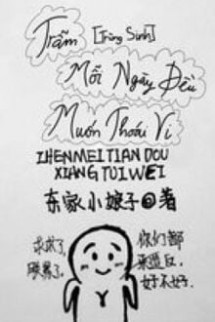 Trẫm [Trùng Sinh]
Mỗi Ngày Đều
Muốn Thoái Vị
ZHENMEITIAN DOU
XIANG TUI WEI
东家小娘子@著
求求了,
朕累了.
你们都
来造反,
好不好.